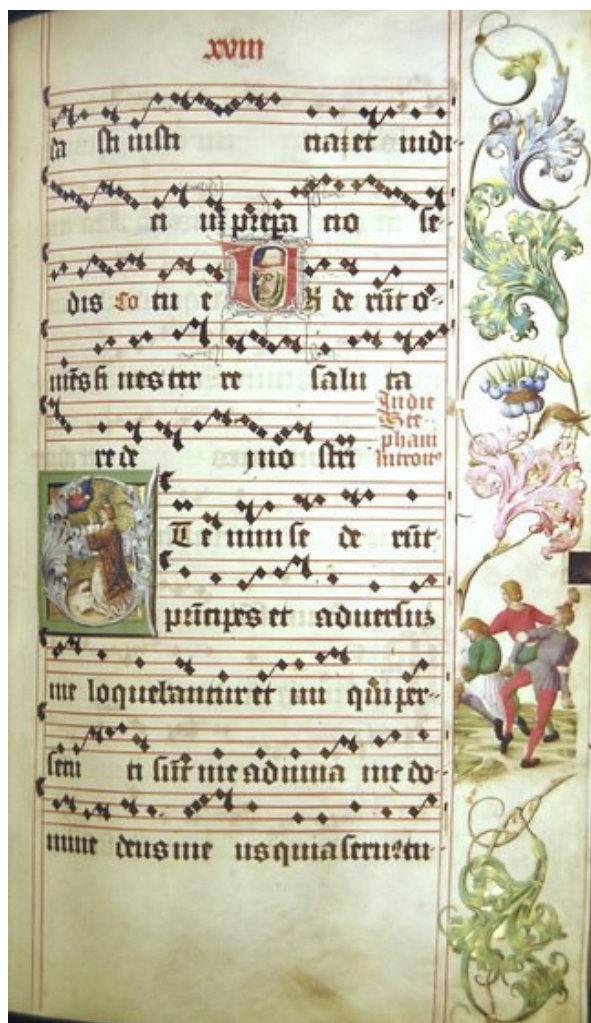 xviii
da sti iusti ciaz et iudi-
ci uz prepa cio se-
dis Co tu e Vi de rūt o-
mēs fi nes ter re salu ta
re de i no stri
In die
Ste-
phani
Introit9
Et e nim se de rūt
prīncipes et aduersuz
me loquebantur et ini qui per-
secu ti sūt me adiuua me do-
mine deus me us quia seru9 tu-